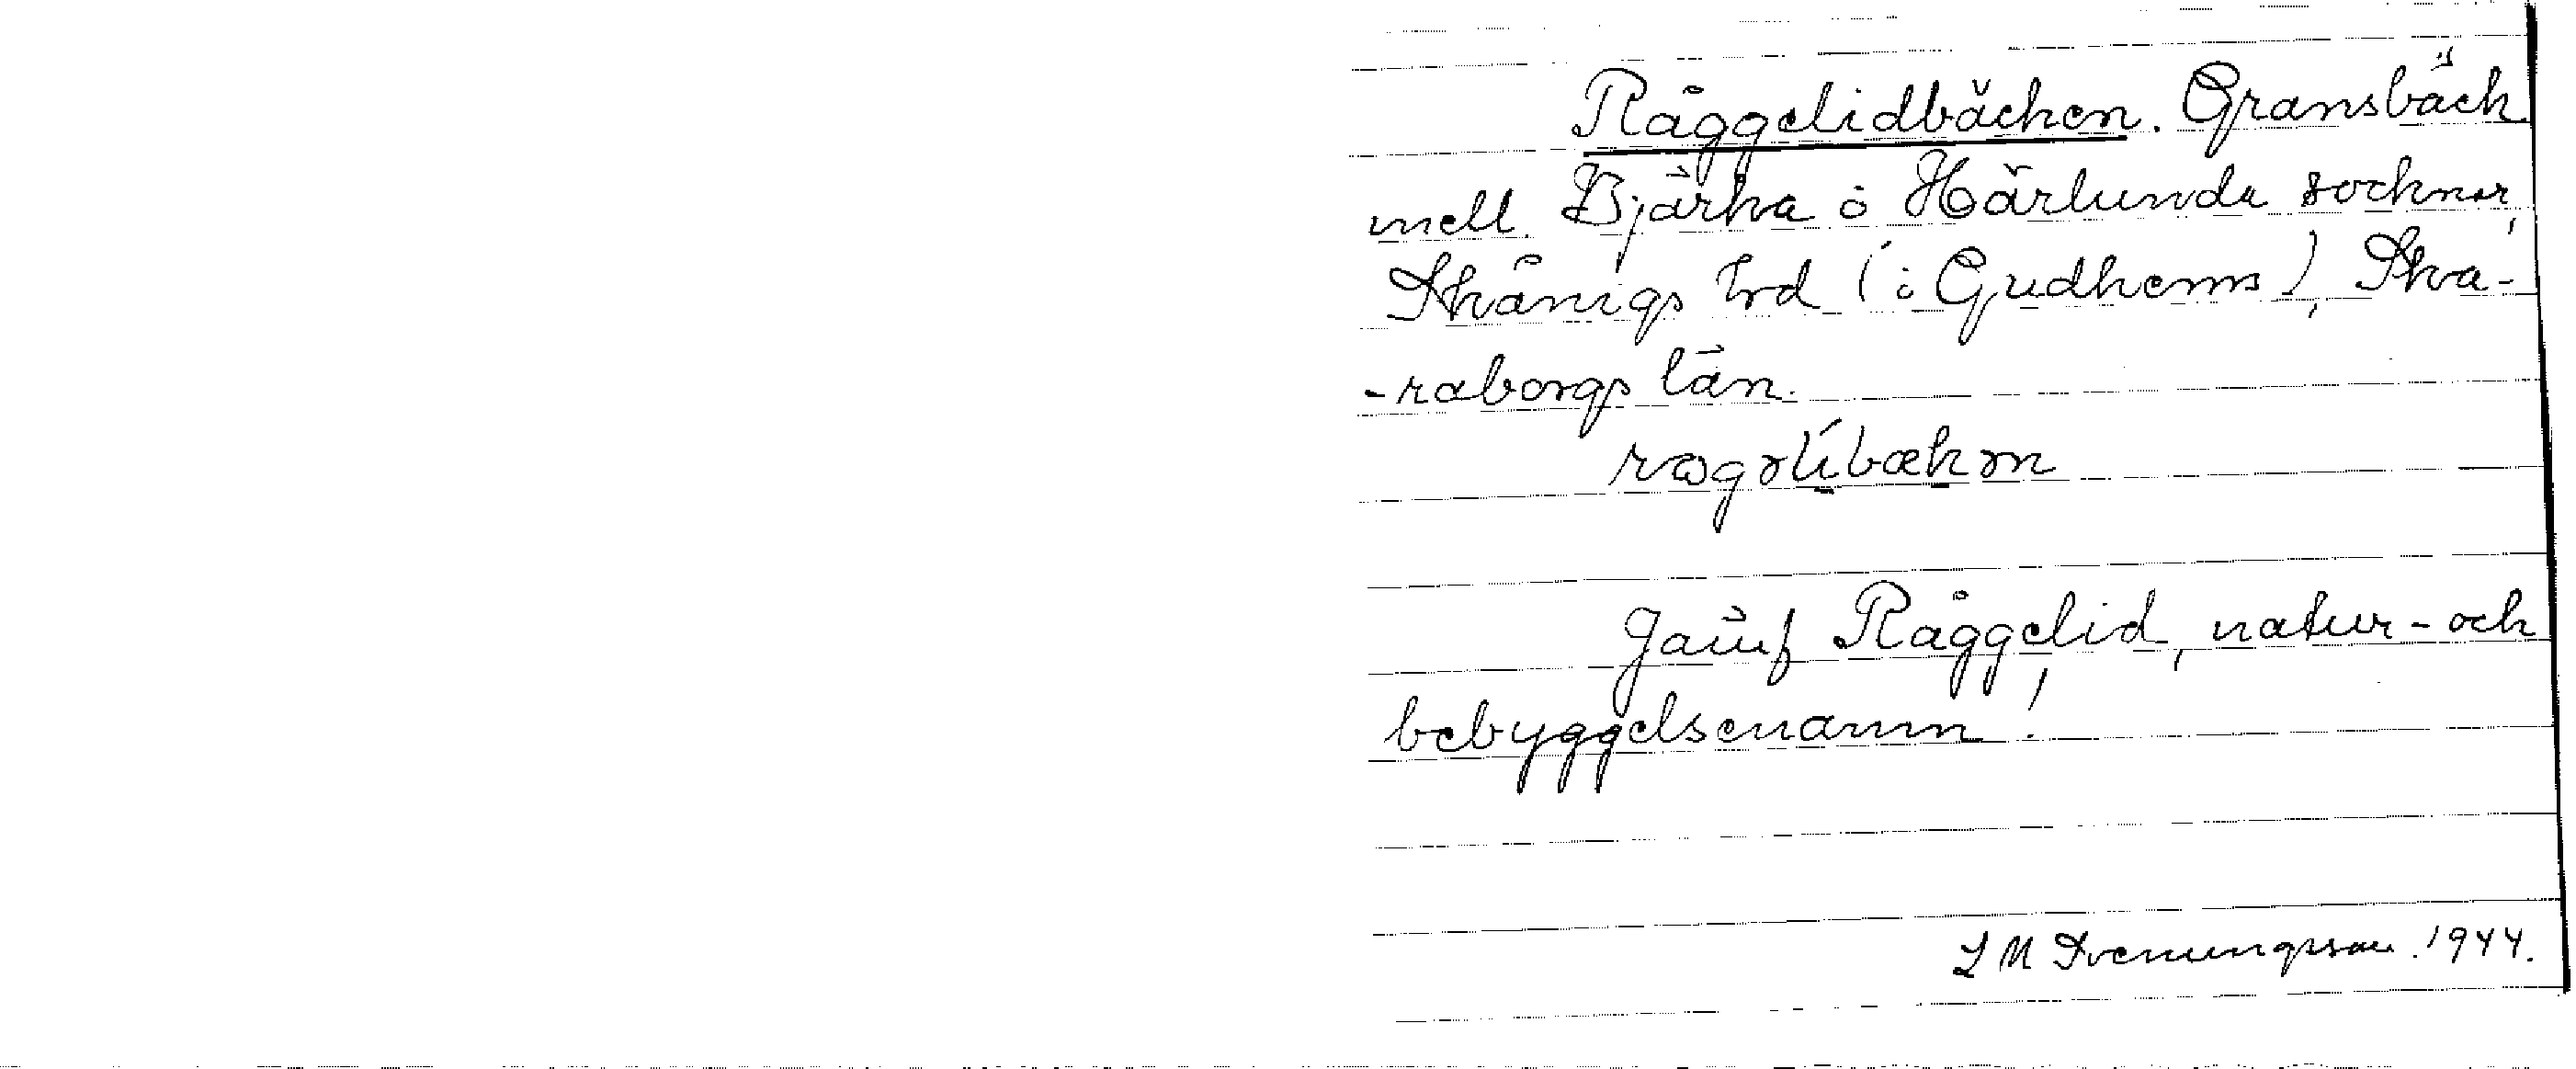 Råggelidbäcken. Gränsbäck
mell. Bjärka o Härlunda socknar,
Skånings hrd (o Gudhems), Ska-
-raborgs län.
Jämf Råggelid, natur- och
bebyggelsenamn!
L M Svenungsson. 1944.